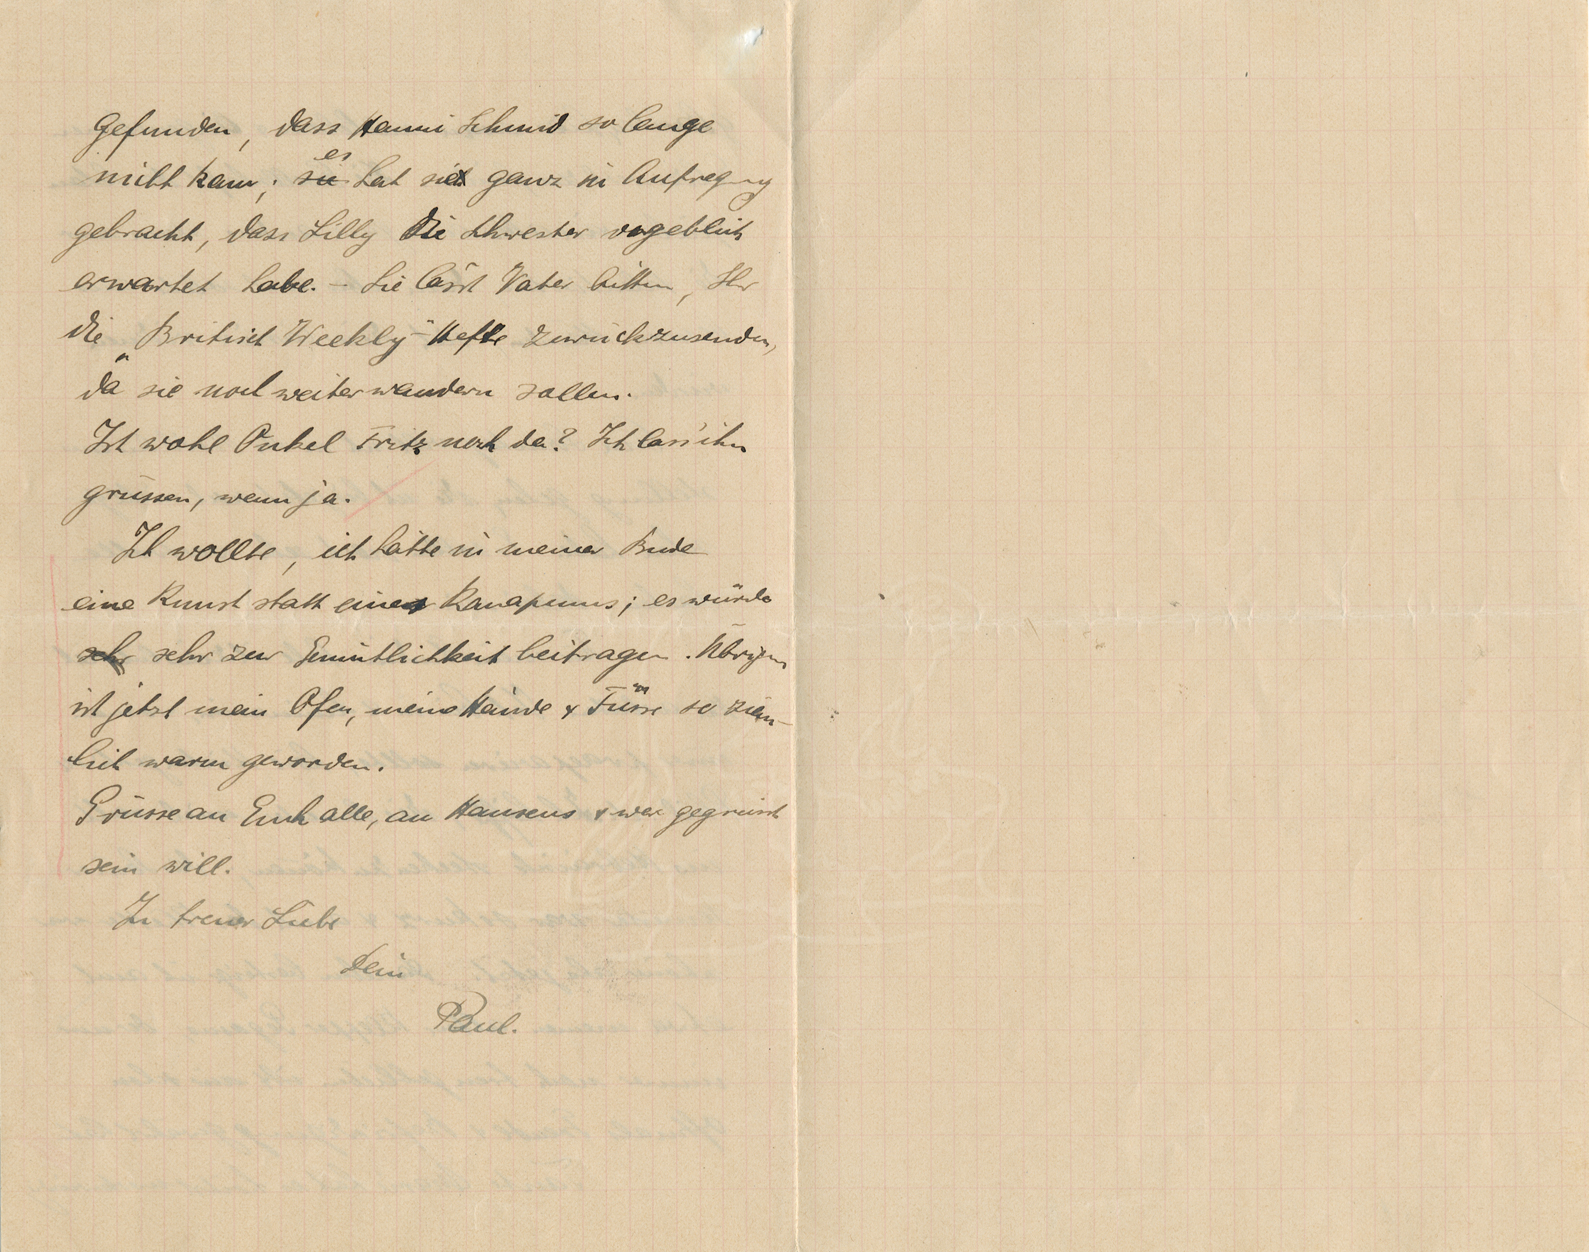 gefunden, dass Hanni Schmid so lange
nicht kam; sie es hat sie ganz in Aufregung
gebracht, dass Lilly die Schwester vergeblich
erwartet habe. – Sie lässt Vater bitten, Ihr
die "British Weekly"-Hefte zurückzusenden,
da sie noch weiterwandern sollen.
Ist wohl Onkel Fritz noch da? Ich lass' ihn
grüssen, wenn ja.
Ich wollte, ich hätte in meiner Bude
eine Kunst statt eines Kanapeums; es würde
sehr sehr zur Gemütlichkeit beitragen. Übrigens
ist jetzt mein Ofen, meine Hände & Füsse so ziem-
lich warm geworden.
Grüsse an Euch alle, an Hansens & wer gegrüsst
sein will.
In treuer Liebe
Dein
Paul.